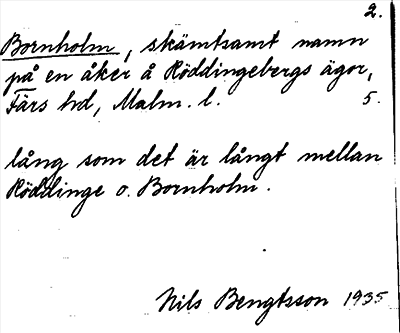 2.
Bornholm, skämtsamt namn
på en åker å Röddingebergs ägor,
Färs hd, Malm. l. 5.
lång som det är långt mellan
Röddinge o. Bornholm.
Nils Bengtsson 1935